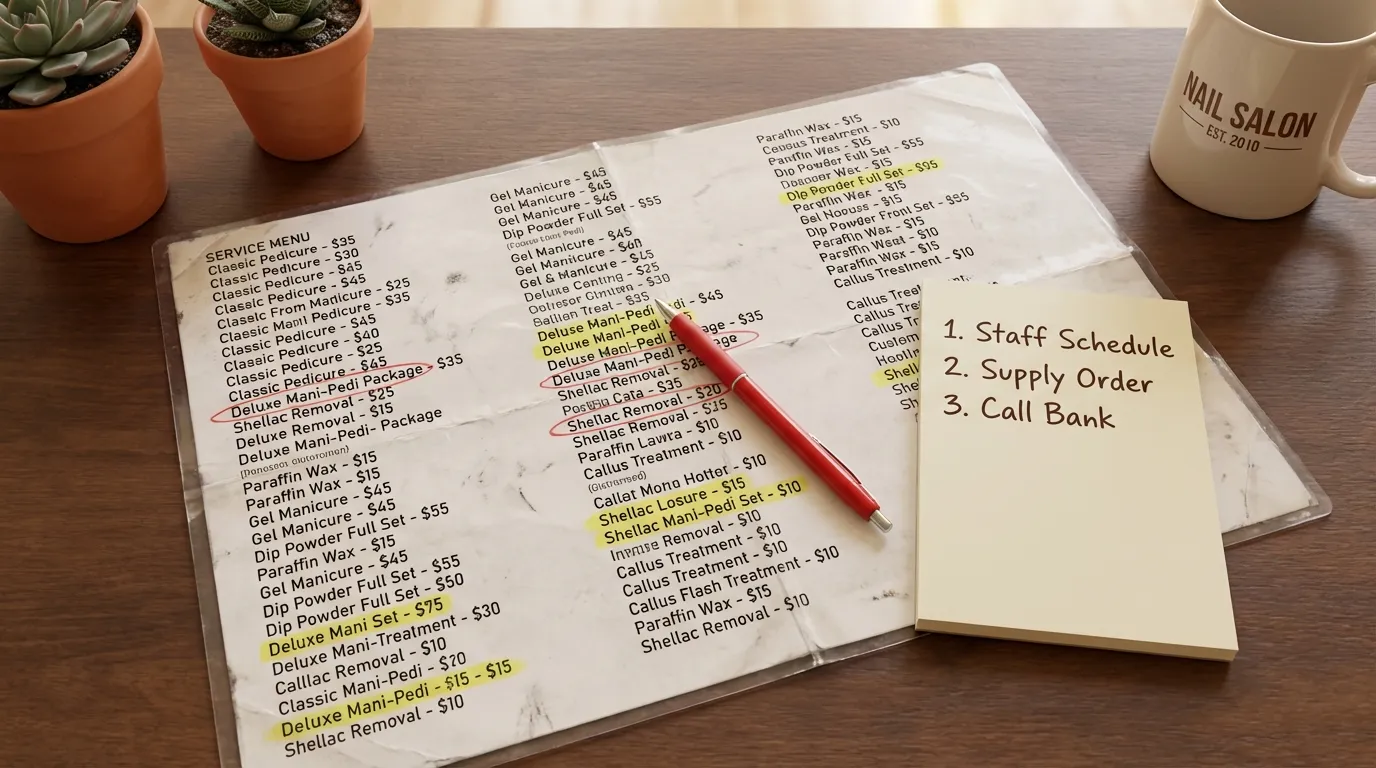 SERVICE MENU
Classic Pedicure - $35
Classic Pedicure - $30
Classic Pedicure - $45
Classic Pedicure - $45
Classic From Manicure - $25
Classic Pedicure - $35
Classic Pedicure - $45
Classic Pedicure - $40
Classic Pedicure - $25
Classic Pedicure - $45
Deluxe Mani-Pedi Package - $35
Shellac Removal - $25
Deluxe Removal - $15
Deluxe Mani-Pedi- Package
Paraffin Wax - $15
Paraffin Wax - $15
Gel Manicure - $45
Gel Manicure - $45
Dip Powder Full Set - $55
Paraffin Wax - $15
Gel Manicure - $45
Dip Powder Full Set - $55
Dip Powder Full Set - $50
Deluxe Mani Set - $75
Deluxe Mani-Treatment - $30
Calllac Removal - $10
Classic Mani-Pedi - $20
Deluxe Mani-Pedi - $15 - $15
Shellac Removal - $10
Gel Manicure - $45
Gel Manicure - $45
Gel Manicure - $45
Dip Powder Full Set - $55
Gel Manicure - $45
Gel Manicure
Gel & Manicure
Deluxe - $25
- $30
Treat - $35
Deluse Mani-Pedi - $45
Deluxe Mani-Pedi
Deluxe Mani-Pedi - $35
Deluxe Mani-Pedi Package
Shellac Removal
Cata - $35
Shellac Removal - $20
Shellac Removal
Paraffin - $10
Callus Treatment - $10
Callet Mono Hotter - $10
Shellac Losure - $15
Shellac Mani-Pedi Set - $10
Removal - $10
Callus Treatment - $10
Callus Treatment - $10
Callus Flash Treatment - $10
Paraffin Wax - $15
Shellac Removal - $10
Paraffin Wax - $15
Treatment - $10
Paraffin Wax - $15
Dip Powder Full Set - $55
Wax - $15
Dip Powder Full Set - $95
Paraffin Wax - $15
Gel - $15
Dip Powder Set
Paraffin Wax - $15
Paraffin - $10
Paraffin Wax - $15
Callus Treatment - $10
Callus
Callus
Callus
NAIL SALON
EST. 2010
1. Staff Schedule
2. Supply Order
3. Call Bank